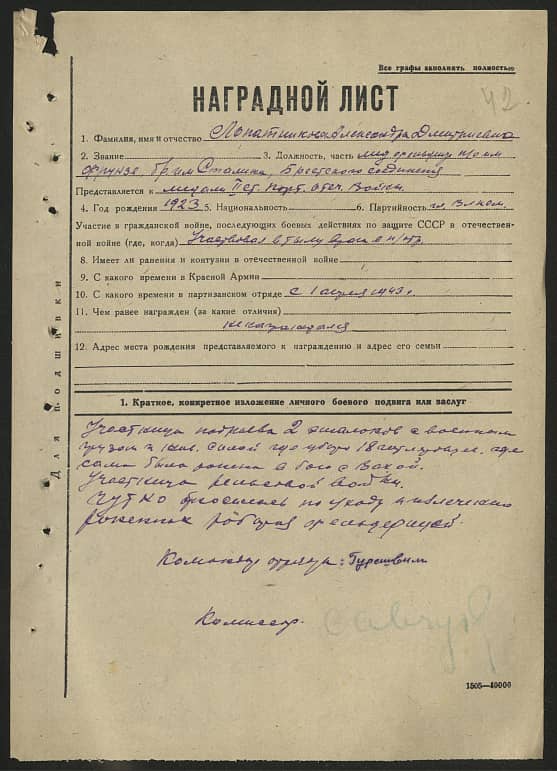 Все графы заполнять полностью
42
НАГРАДНОЙ ЛИСТ
1. Фамилия, имя и отчество Александра Дмитриевна
2. Звание 3. Должность, часть
Фрунзе, бр. им Сталина, Брестского соединения
Представляется к медали II ст. Парт. отеч. Войны
4. Год рождения 1923 5. Национальность 6. Партийность чл. ВЛКСМ.
Участие в гражданской войне, последующих боевых действиях по защите СССР в отечествен-
ной войне (где, когда) Участвовал в тылу врага в
8. Имеет ли ранения и контузии в отечественной войне
9. С какого времени в Красной Армии
10. С какого времени в партизанском отряде с 1 апреля 1943 г.
11. Чем ранее награжден (за какие отличия)
не награждался
12. Адрес места рождения представляемого к награждению и адрес его семьи
Для подшивки
1. Краткое, конкретное изложение личного боевого подвига или заслуг
Участница подрыва 2 эшелонов с военным
грузом и жив. силой где убито 18 где
сама была ранена в бою с
Участница рельсовой войны.
Чутко относилась по уходу и излечению
раненых работая
Командир отряда:
Комиссар.
1505—40000